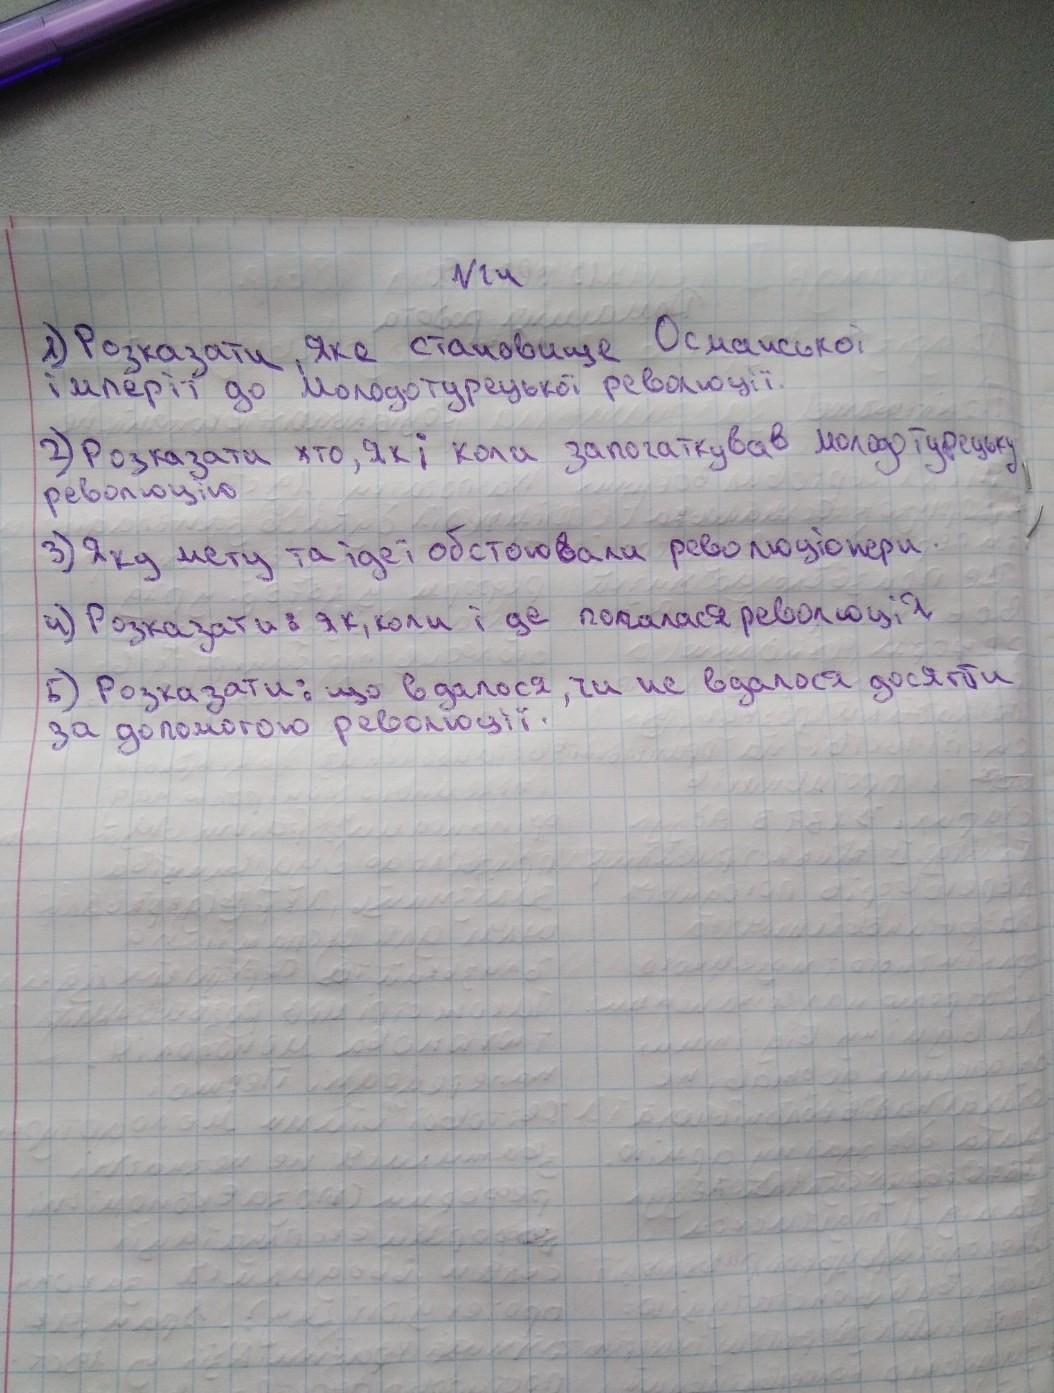 №4
1) Розказати, яке становище Османської
імперії до молодотурецької революції.
2) Розказати хто, як і коли започаткував молодотурецьку
революцію
3) Яку мету та ідеї обстоювали революціонери.
4) Розказати: як, коли і де почалася революція
5) Розказати: що вдалося, чи не вдалося досягти
за допомогою революції.